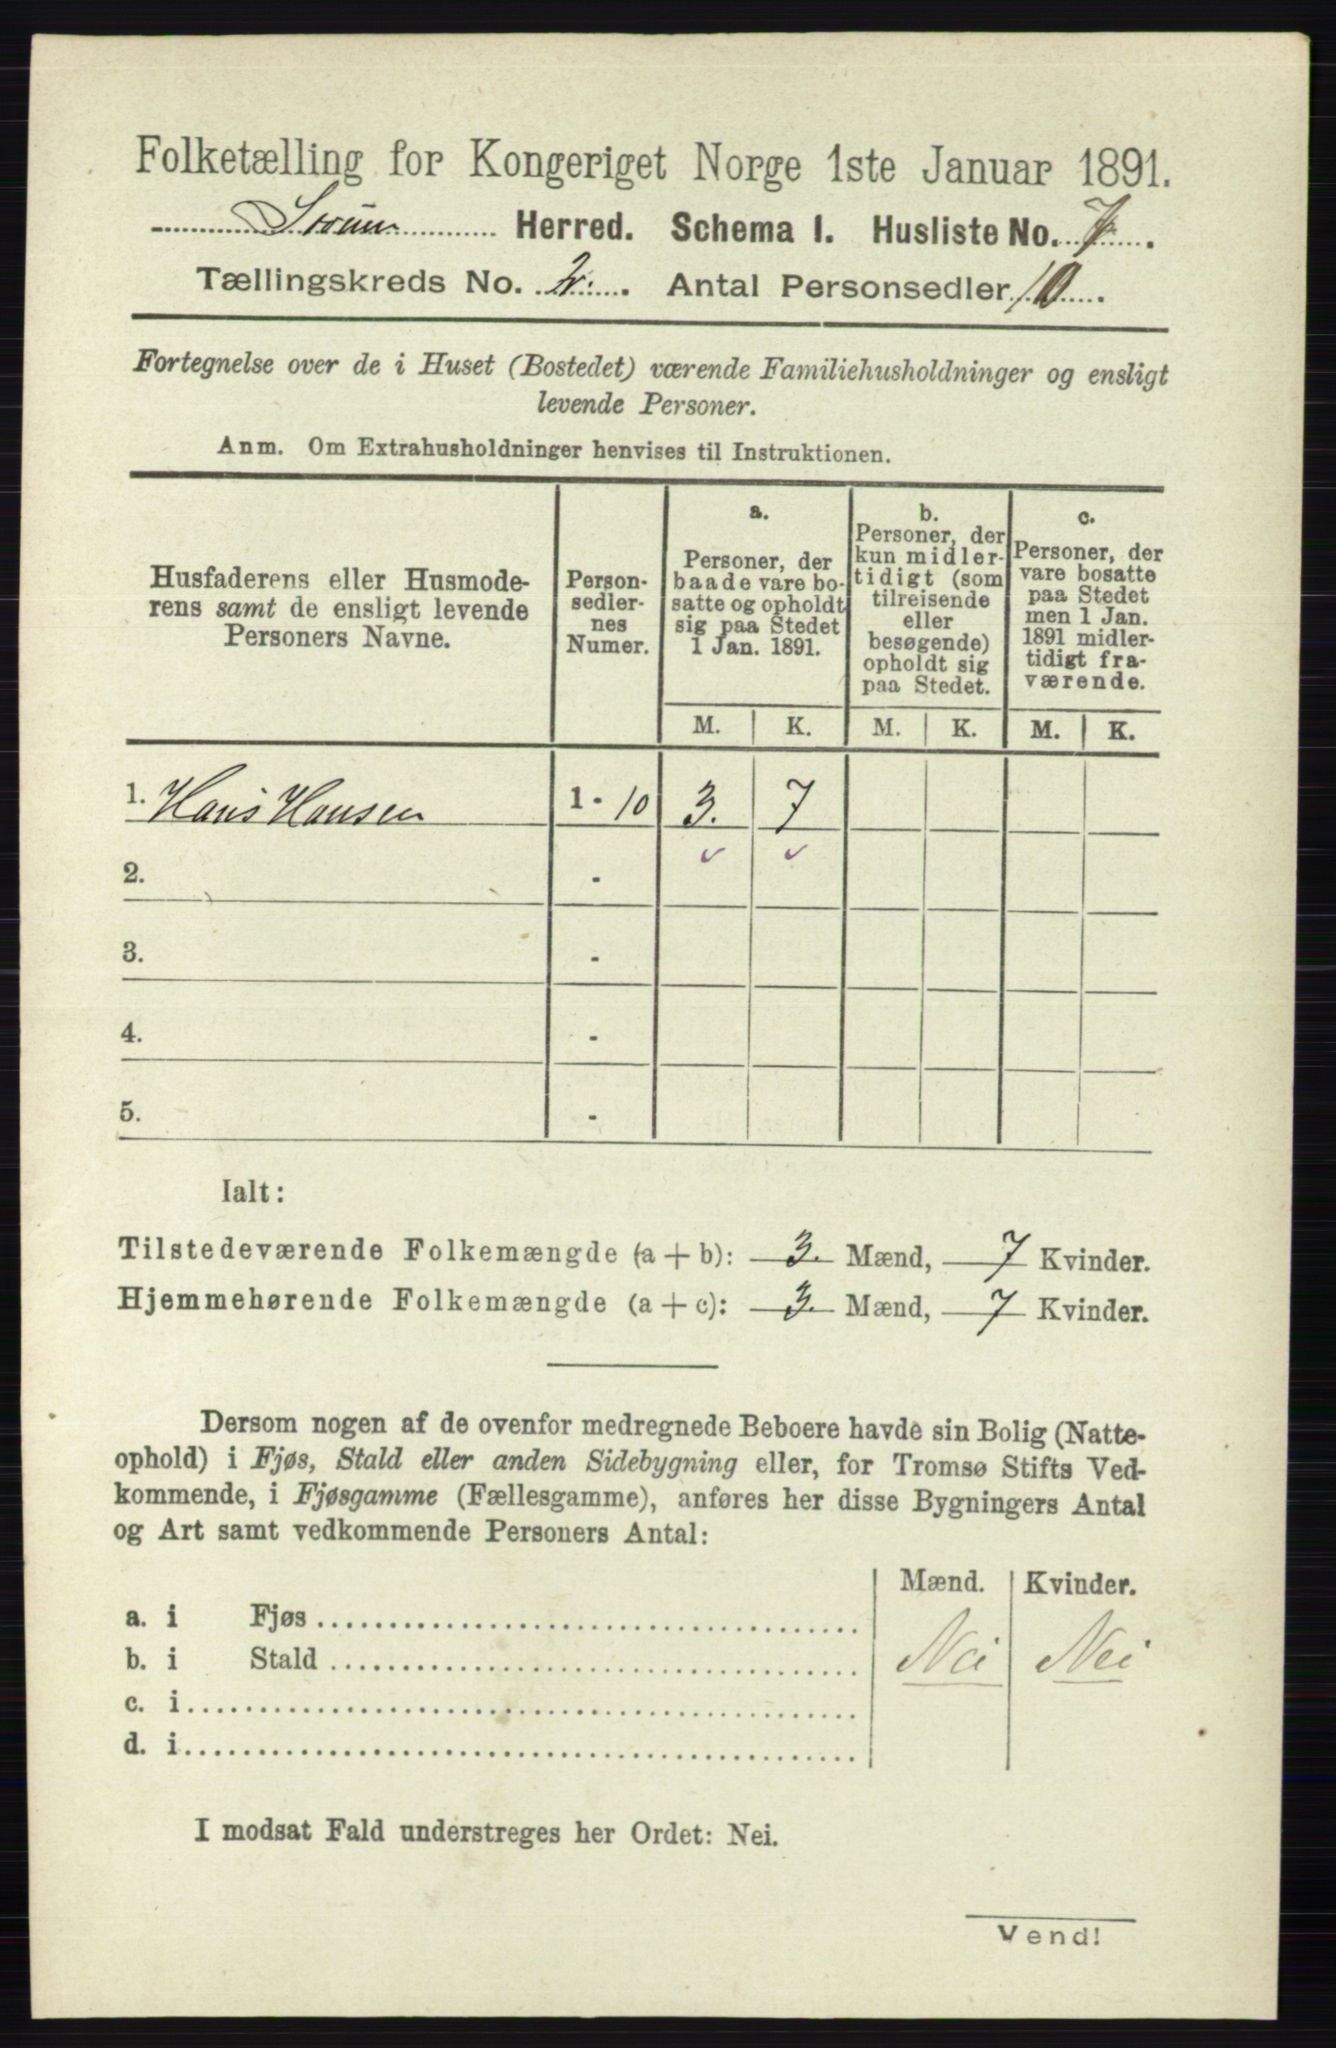 Folketælling for Kongeriget Norge 1ste Januar 1891.
Sørum Herred. Schema I. Husliste No. 7.
Tællingskreds No. 2. Antal Personsedler 10.
Fortegnelse over de i Huset (Bostedet) værende Familiehusholdninger og ensligt
levende Personer.
Anm. Om Extrahusholdninger henvises til Instruktionen.
Husfaderens eller Husmode-
rens samt de ensligt levende
Personers Navne.
Person-
sedler-
nes
Numer.
a.
Personer, der
baade vare bo-
satte og opholdt
sig paa Stedet
1 Jan. 1891.
b.
Personer, der
kun midler-
tidigt (som
tilreisende
eller
besøgende)
opholdt sig
paa Stedet.
c.
Personer, der
vare bosatte
paa Stedet
men 1 Jan.
1891 midler-
tidigt fra-
værende.
M. K. M. K. M. K.
1. Hans Hansen 1 - 10 3. 7
2. -
3. -
4. -
5. -
Ialt:
Tilstedeværende Folkemængde (a + b): 3. Mænd, 7 Kvinder.
Hjemmehørende Folkemængde (a + c): 3. Mænd, 7 Kvinder.
Dersom nogen af de ovenfor medregnede Beboere havde sin Bolig (Natte-
ophold) i Fjøs, Stald eller anden Sidebygning eller, for Tromsø Stifts Ved-
kommende, i Fjøsgamme (Fællesgamme), anføres her disse Bygningers Antal
og Art samt vedkommende Personers Antal:
Mænd. Kvinder.
a. i Fjøs
b. i Stald Nei Nei
c. i
d. i
I modsat Fald understreges her Ordet: Nei.
Vend!